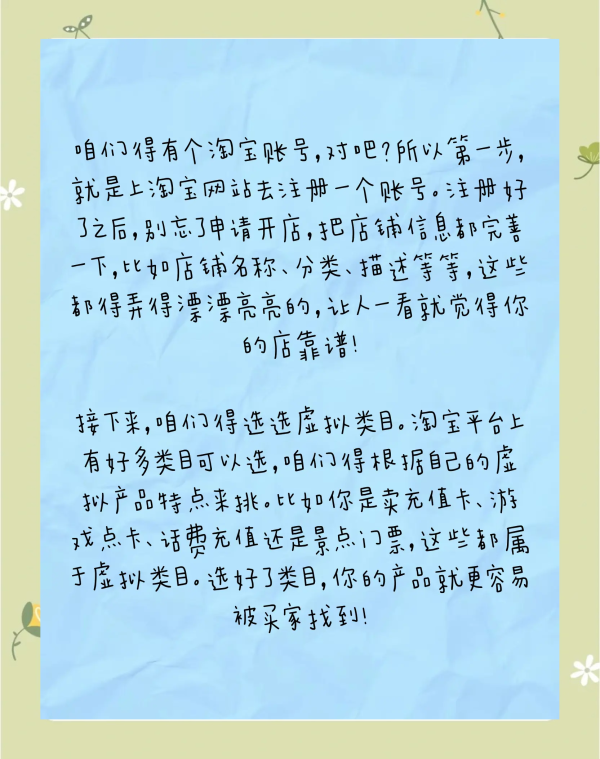 咱们得有个淘宝账号,对吧?所以第一步,
就是上淘宝网站去注册一个账号。注册好
了之后,别忘了申请开店,把店铺信息都完善
一下,比如店铺名称、分类、描述等等,这些
都得弄得漂漂亮亮的,让人一看就觉得你
的店靠谱!
接下来,咱们得选选虚拟类目。淘宝平台上
有好多类目可以选,咱们得根据自己的虚
拟产品特点来挑。比如你是卖充值卡、游
戏点卡、话费充值还是景点门票,这些都属
于虚拟类目。选好了类目,你的产品就更容易
被买家找到!